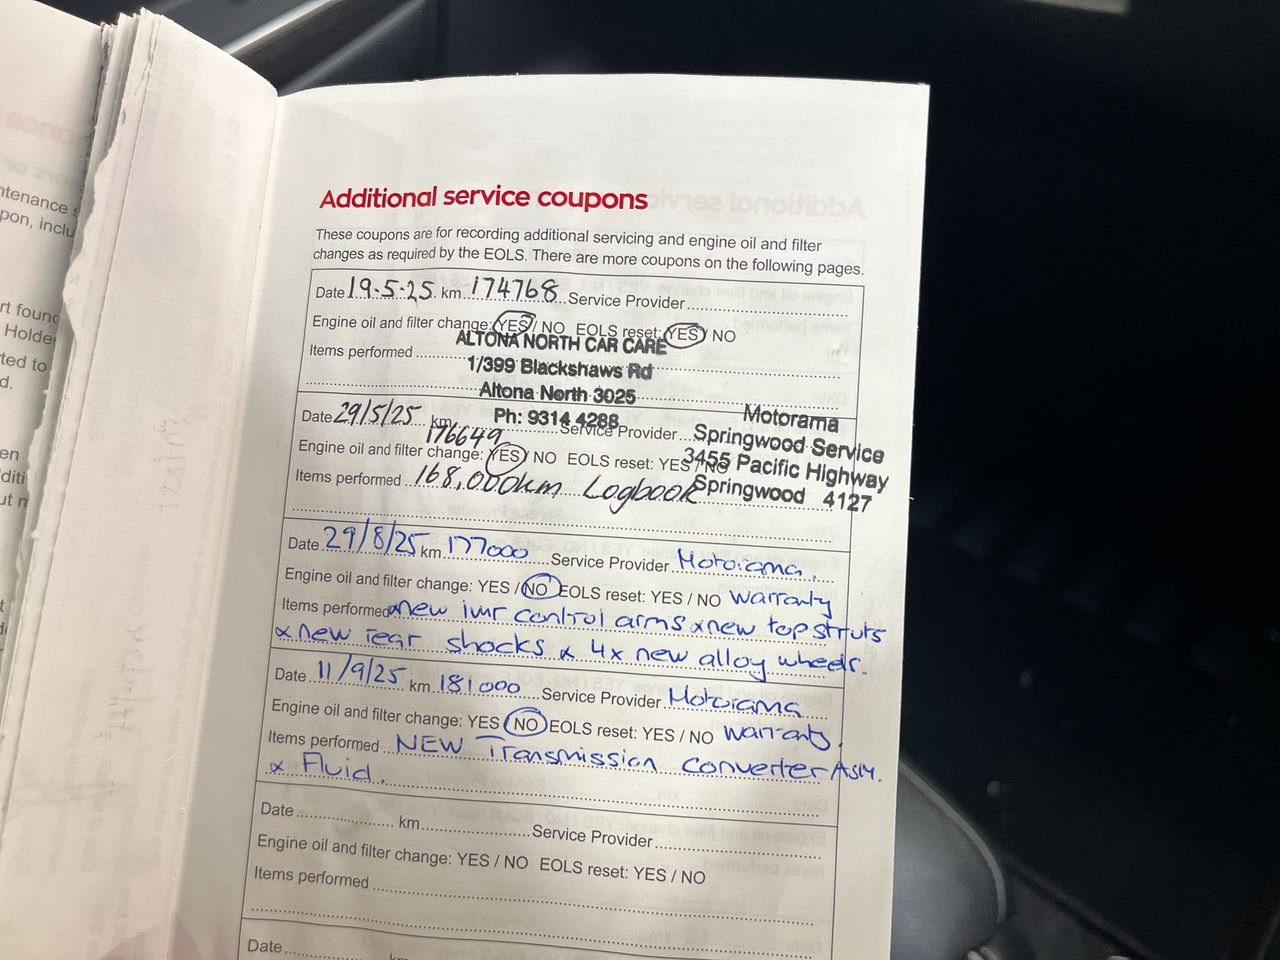 Additional service coupons
These coupons are for recording additional servicing and engine oil and filter
changes as required by the EOLS. There are more coupons on the following pages.
Date 19-5-25 km 174768 Service Provider
Engine oil and filter change: YES / NO EOLS reset: YES / NO
ALTONA NORTH CAR CARE
Items performed
1/399 Blackshaws Rd
Altona North 3025
Ph: 9314 4288
Date 29/5/25 km 176649 Service Provider
Motorama
Springwood Service
3455 Pacific Highway
Springwood 4127
Engine oil and filter change: YES / NO EOLS reset: YES / NO
Items performed 168,000km Logbook
Date 29/8/25 km 177000 Service Provider Motorama.
Engine oil and filter change: YES / NO EOLS reset: YES / NO Warranty
Items performed new lwr control arms x new top struts
x new rear shocks x 4x new alloy wheels.
Date 11/9/25 km 181000 Service Provider Motorama
Engine oil and filter change: YES / NO EOLS reset: YES / NO Warranty.
Items performed NEW Transmission Converter ASM.
x Fluid.
Date km Service Provider
Engine oil and filter change: YES / NO EOLS reset: YES / NO
Items performed
Date km